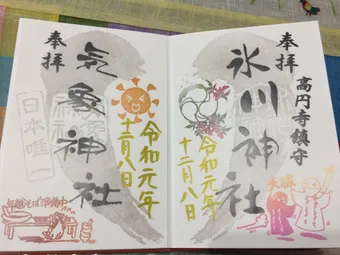 奉拝
高円寺鎮守
氷川神社
令和元年
十二月八日
奉拝
気象神社
日本唯一
令和元年
十二月八日